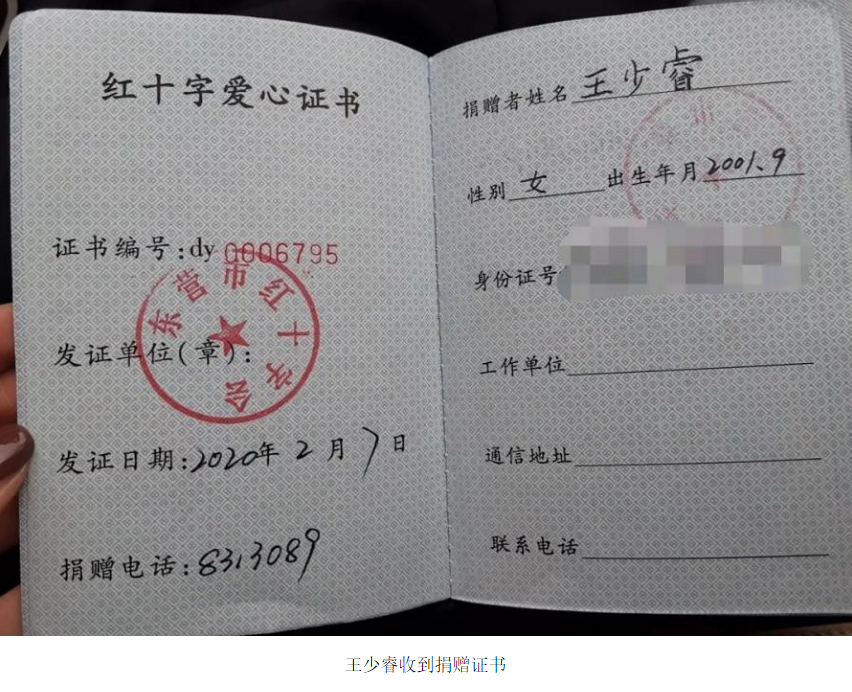 红十字爱心证书
证书编号:dy 0006795
东营市红十字会
发证单位(章):
发证日期:2020年2月7日
捐赠电话:8313089
捐赠者姓名 王少睿
性别 女 出生年月 2001.9
身份证号
工作单位
通信地址
联系电话
王少睿收到捐赠证书